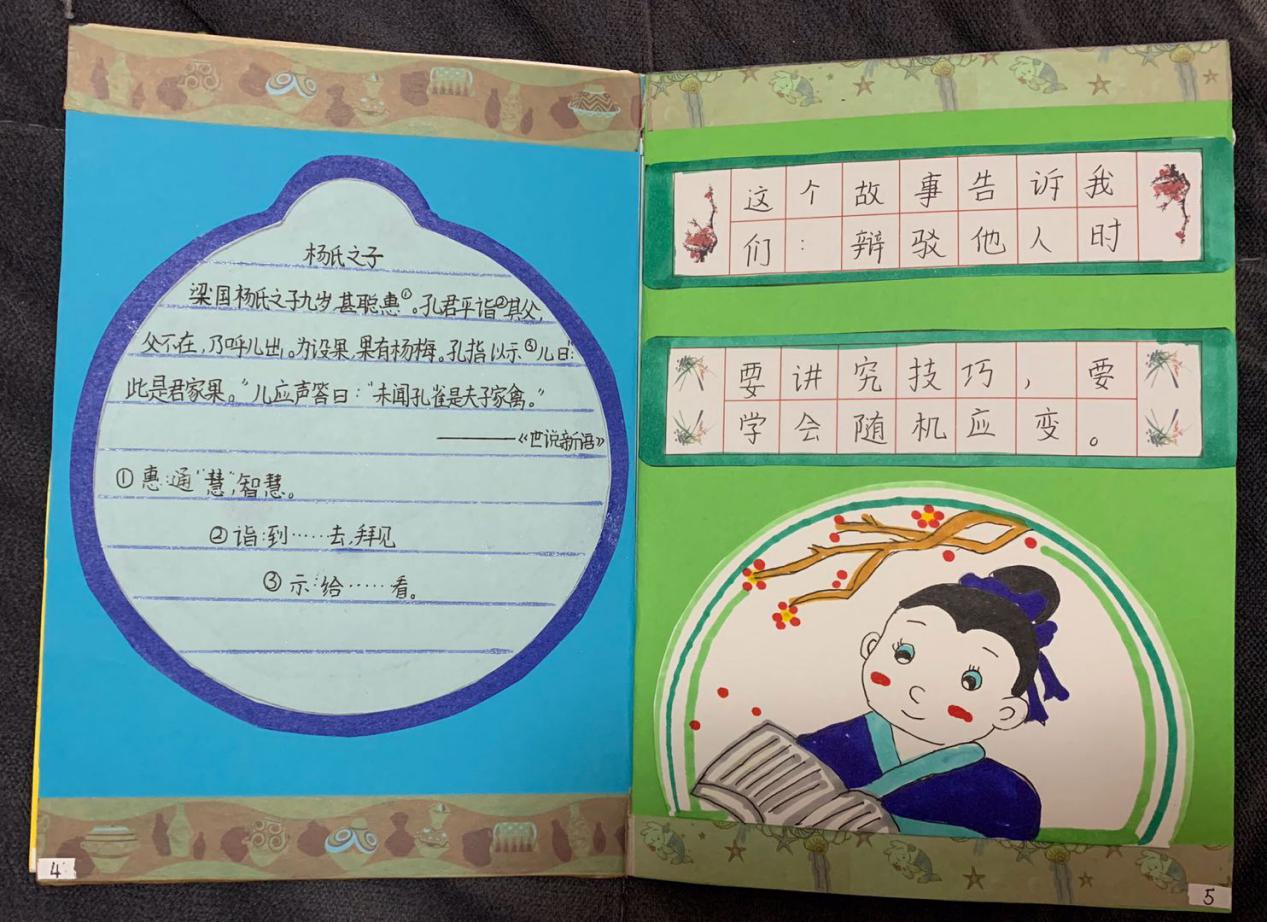 杨氏之子
梁国杨氏之子九岁,甚聪惠①。孔君平诣②其父,
父不在,乃呼儿出。为设果,果有杨梅。孔指以示③儿曰:
此是君家果。”儿应声答曰:“未闻孔雀是夫子家禽。”
——《世说新语》
①惠:通“慧”,智慧。
②诣:到……去,拜见
③示:给……看。
4
这个故事告诉我
们:辩驳他人时
要讲究技巧,要
学会随机应变。
5